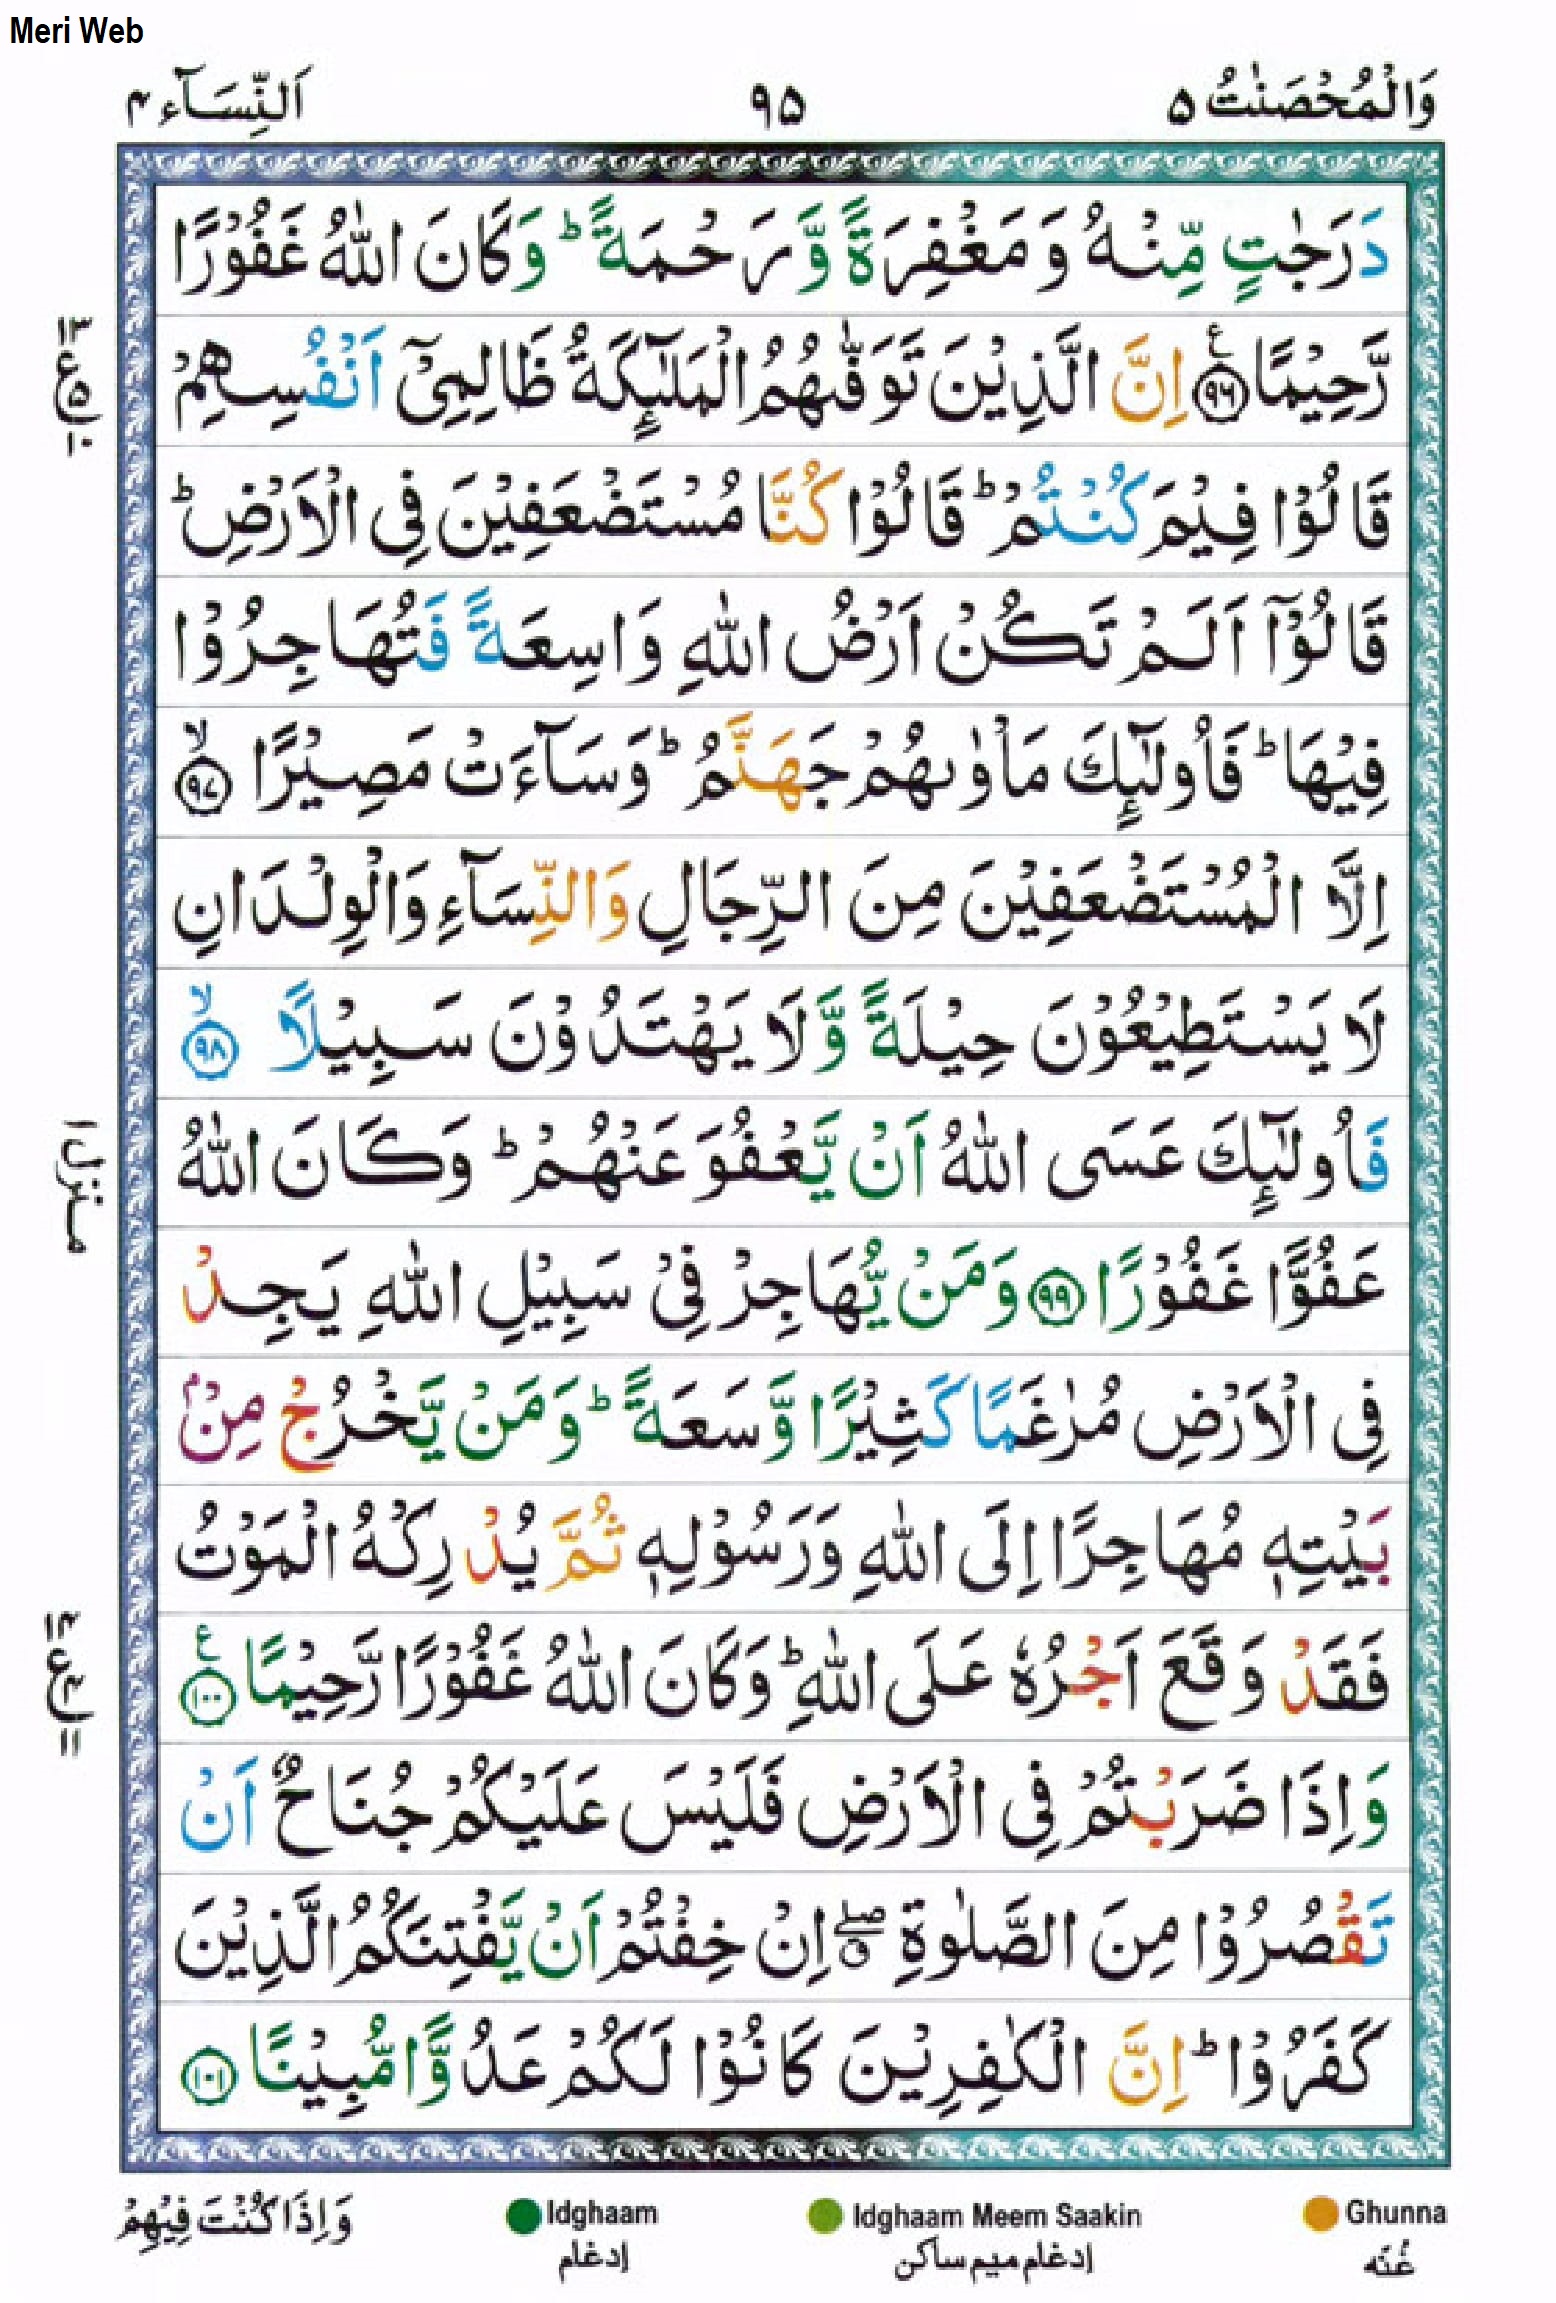 Meri Web
وَالْمُحْصَنٰتُ ٥
٩٥
اَلنِّسَآء ٤
دَرَجٰتٍ مِّنْهُ وَ مَغْفِرَةً وَّ رَحْمَةً ؕ وَ كَانَ اللّٰهُ غَفُوْرًا
رَّحِیْمًا ﴿۹۶﴾ ع اِنَّ الَّذِیْنَ تَوَفّٰىهُمُ الْمَلٰٓىِٕكَةُ ظَالِمِیْۤ اَنْفُسِهِمْ
قَالُوْا فِیْمَ كُنْتُمْ ؕ قَالُوْا كُنَّا مُسْتَضْعَفِیْنَ فِی الْاَرْضِ ؕ
قَالُوْۤا اَلَمْ تَكُنْ اَرْضُ اللّٰهِ وَاسِعَةً فَتُهَاجِرُوْا
فِیْهَا ؕ فَاُولٰٓىِٕكَ مَاْوٰىهُمْ جَهَنَّمُ ؕ وَسَآءَتْ مَصِیْرًا ﴿۹۷﴾ ۙ
اِلَّا الْمُسْتَضْعَفِیْنَ مِنَ الرِّجَالِ وَالنِّسَآءِ وَالْوِلْدَانِ
لَا یَسْتَطِیْعُوْنَ حِیْلَةً وَّ لَا یَهْتَدُوْنَ سَبِیْلًا ﴿۹۸﴾ ۙ
فَاُولٰٓىِٕكَ عَسَى اللّٰهُ اَنْ یَّعْفُوَ عَنْهُمْ ؕ وَكَانَ اللّٰهُ
عَفُوًّا غَفُوْرًا ﴿۹۹﴾ وَمَنْ یُّهَاجِرْ فِیْ سَبِیْلِ اللّٰهِ یَجِدْ
فِی الْاَرْضِ مُرٰغَمًا كَثِیْرًا وَّسَعَةً ؕ وَمَنْ یَّخْرُجْ مِنْۢ
بَیْتِهٖ مُهَاجِرًا اِلَى اللّٰهِ وَرَسُوْلِهٖ ثُمَّ یُدْرِكْهُ الْمَوْتُ
فَقَدْ وَقَعَ اَجْرُهٗ عَلَى اللّٰهِ ؕ وَكَانَ اللّٰهُ غَفُوْرًا رَّحِیْمًا ﴿۱۰۰﴾ ع
وَاِذَا ضَرَبْتُمْ فِی الْاَرْضِ فَلَیْسَ عَلَیْكُمْ جُنَاحٌ اَنْ
تَقْصُرُوْا مِنَ الصَّلٰوةِ ۖۗ اِنْ خِفْتُمْ اَنْ یَّفْتِنَكُمُ الَّذِیْنَ
كَفَرُوْا ؕ اِنَّ الْكٰفِرِیْنَ كَانُوْا لَكُمْ عَدُوًّا مُّبِیْنًا ﴿۱۰۱﴾
۱۳ ع ۵ ۱۰
منزل ۱
۱۴ ع ۴ ۱۱
وَاِذَا كُنْتَ فِیْهِمْ
Idghaam
إدغام
Idghaam Meem Saakin
إدغام میم ساکن
Ghunna
غُنّه